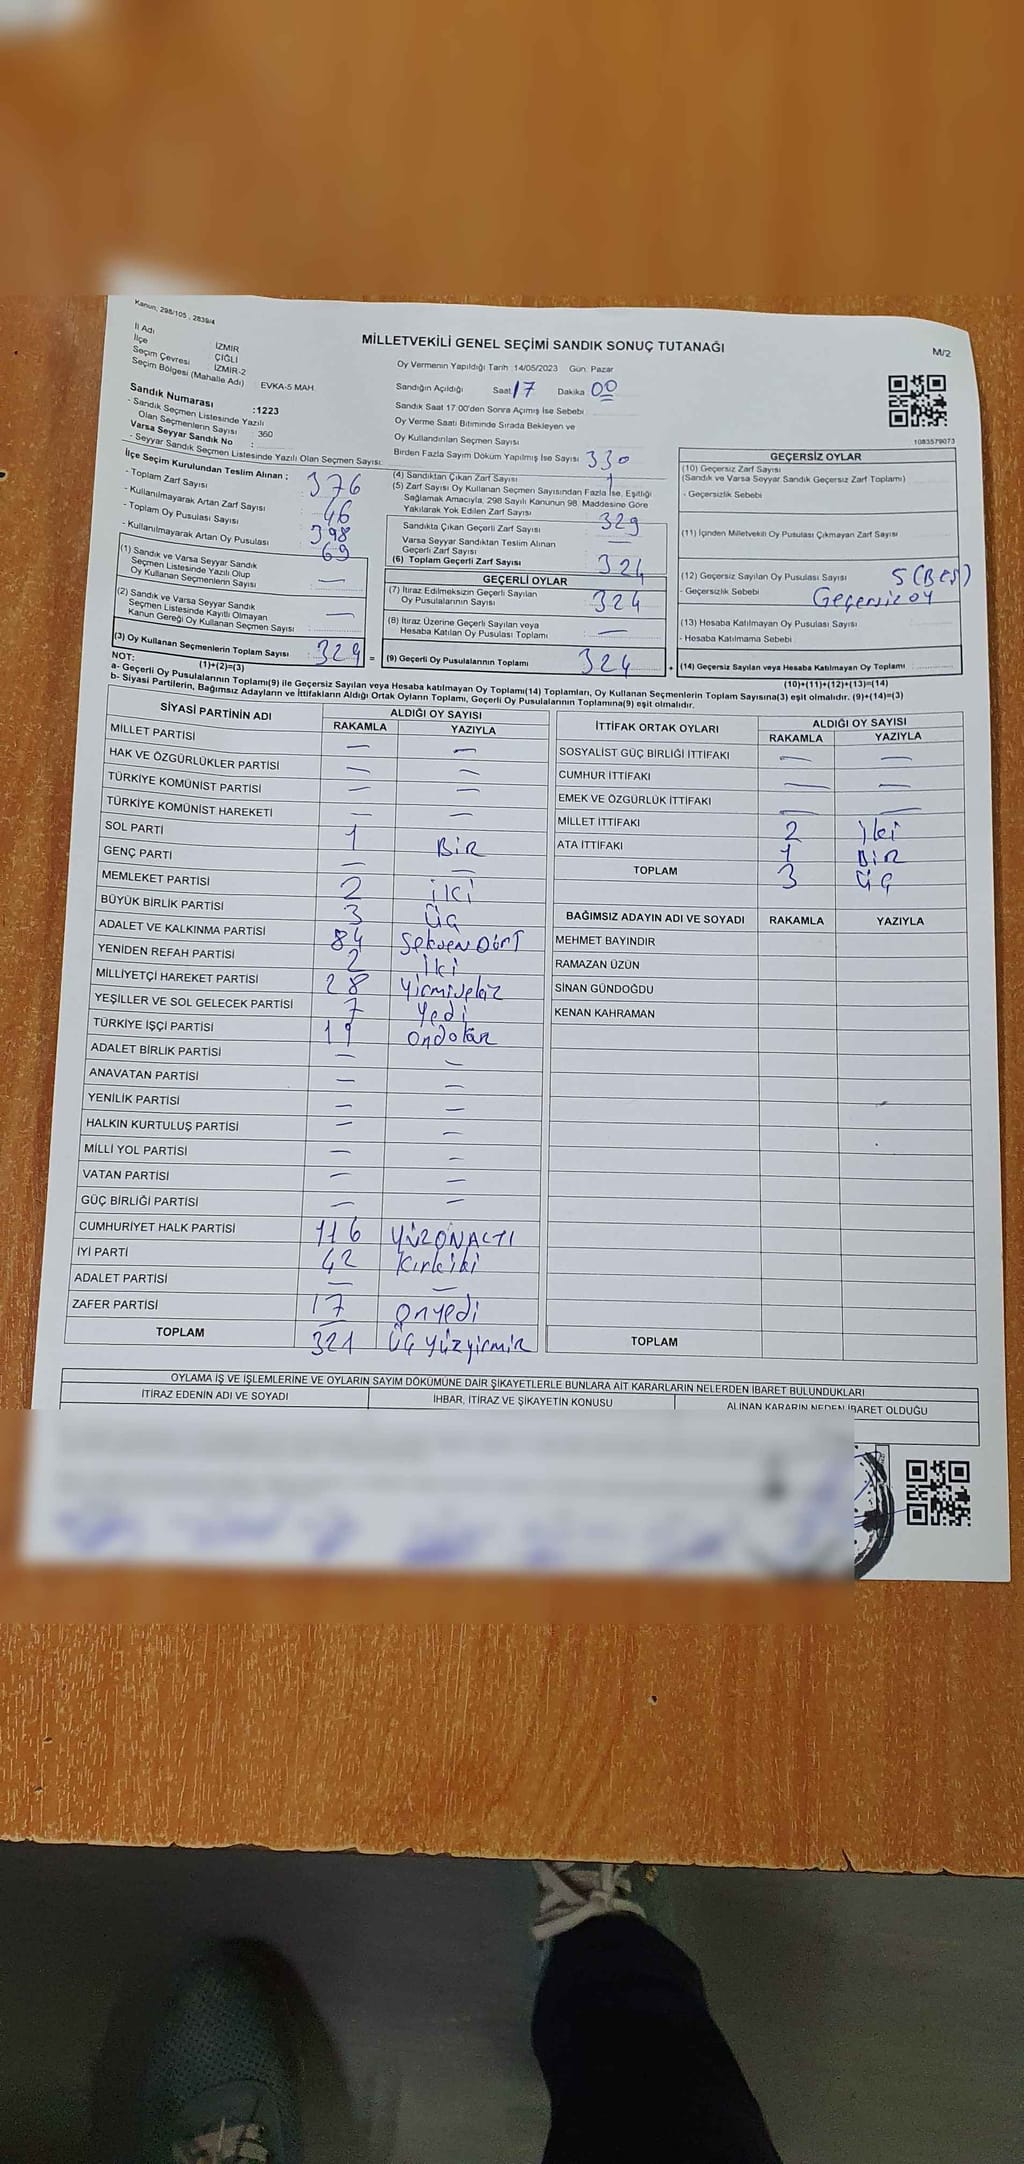 Kanun; 298/105 , 2839/4
MİLLETVEKİLİ GENEL SEÇİMİ SANDIK SONUÇ TUTANAĞI
M/2
İl Adı İZMİR
İlçe ÇİĞLİ
Seçim Çevresi İZMİR-2
Seçim Bölgesi (Mahalle Adı) EVKA-5 MAH.
Sandık Numarası :1223
- Sandık Seçmen Listesinde Yazılı
Olan Seçmenlerin Sayısı : 360
Varsa Seyyar Sandık No :
- Seyyar Sandık Seçmen Listesinde Yazılı Olan Seçmen Sayısı:
Oy Vermenin Yapıldığı Tarih 14/05/2023 Gün: Pazar
Sandığın Açıldığı Saat 17 Dakika 00
Sandık Saat 17:00'den Sonra Açılmış İse Sebebi
Oy Verme Saati Bitiminde Sırada Bekleyen ve
Oy Kullandırılan Seçmen Sayısı
Birden Fazla Sayım Döküm Yapılmış İse Sayısı
1083579073
İlçe Seçim Kurulundan Teslim Alınan :
- Toplam Zarf Sayısı 376
- Kullanılmayarak Artan Zarf Sayısı 46
- Toplam Oy Pusulası Sayısı 398
- Kullanılmayarak Artan Oy Pusulası 69
(1) Sandık ve Varsa Seyyar Sandık
Seçmen Listesinde Yazılı Olup
Oy Kullanan Seçmenlerin Sayısı —
(2) Sandık ve Varsa Seyyar Sandık
Seçmen Listesinde Kayıtlı Olmayan
Kanun Gereği Oy Kullanan Seçmen Sayısı —
(3) Oy Kullanan Seçmenlerin Toplam Sayısı 329 =
(1)+(2)=(3)
(4) Sandıktan Çıkan Zarf Sayısı 330
(5) Zarf Sayısı Oy Kullanan Seçmen Sayısından Fazla İse, Eşitliği
Sağlamak Amacıyla, 298 Sayılı Kanunun 98. Maddesine Göre
Yakılarak Yok Edilen Zarf Sayısı 1
Sandıkta Çıkan Geçerli Zarf Sayısı 329
Varsa Seyyar Sandıktan Teslim Alınan
Geçerli Zarf Sayısı —
(6) Toplam Geçerli Zarf Sayısı 324
GEÇERLİ OYLAR
(7) İtiraz Edilmeksizin Geçerli Sayılan
Oy Pusulalarının Sayısı 324
(8) İtiraz Üzerine Geçerli Sayılan veya
Hesaba Katılan Oy Pusulası Toplamı —
(9) Geçerli Oy Pusulalarının Toplamı 324 +
GEÇERSİZ OYLAR
(10) Geçersiz Zarf Sayısı
(Sandık ve Varsa Seyyar Sandık Geçersiz Zarf Toplamı)
- Geçersizlik Sebebi
(11) İçinden Milletvekili Oy Pusulası Çıkmayan Zarf Sayısı
(12) Geçersiz Sayılan Oy Pusulası Sayısı 5 (BEŞ)
- Geçersizlik Sebebi Geçersiz oy
(13) Hesaba Katılmayan Oy Pusulası Sayısı
- Hesaba Katılmama Sebebi
(14) Geçersiz Sayılan veya Hesaba Katılmayan Oy Toplamı
(10)+(11)+(12)+(13)=(14)
NOT:
a- Geçerli Oy Pusulasının Toplamı(9) ile Geçersiz Sayılan veya Hesaba katılmayan Oy Toplamı(14) Toplamları, Oy Kullanan Seçmenlerin Toplam Sayısına(3) eşit olmalıdır. (9)+(14)=(3)
b- Siyasi Partilerin, Bağımsız Adayların ve İttifakların Aldığı Ortak Oyların Toplamı, Geçerli Oy Pusulalarının Toplamına(9) eşit olmalıdır.
SİYASİ PARTİNİN ADI ALDIĞI OY SAYISI
RAKAMLA YAZIYLA
MİLLET PARTİSİ — —
HAK VE ÖZGÜRLÜKLER PARTİSİ — —
TÜRKİYE KOMÜNİST PARTİSİ — —
TÜRKİYE KOMÜNİST HAREKETİ — —
SOL PARTİ 1 BİR
GENÇ PARTİ — —
MEMLEKET PARTİSİ 2 iki
BÜYÜK BİRLİK PARTİSİ 3 üç
ADALET VE KALKINMA PARTİSİ 84 Seksen Dört
YENİDEN REFAH PARTİSİ 2 İki
MİLLİYETÇİ HAREKET PARTİSİ 28 Yirmisekiz
YEŞİLLER VE SOL GELECEK PARTİSİ 7 Yedi
TÜRKİYE İŞÇİ PARTİSİ 19 ondokuz
ADALET BİRLİK PARTİSİ — —
ANAVATAN PARTİSİ — —
YENİLİK PARTİSİ — —
HALKIN KURTULUŞ PARTİSİ — —
MİLLİ YOL PARTİSİ — —
VATAN PARTİSİ — —
GÜÇ BİRLİĞİ PARTİSİ — —
CUMHURİYET HALK PARTİSİ 116 YÜZONALTI
İYİ PARTİ 42 Kırkiki
ADALET PARTİSİ — —
ZAFER PARTİSİ 17 onyedi
TOPLAM 321 üçyüzyirmiR
İTTİFAK ORTAK OYLARI ALDIĞI OY SAYISI
RAKAMLA YAZIYLA
SOSYALİST GÜÇ BİRLİĞİ İTTİFAKI — —
CUMHUR İTTİFAKI — —
EMEK VE ÖZGÜRLÜK İTTİFAKI — —
MİLLET İTTİFAKI 2 iki
ATA İTTİFAKI 1 BİR
TOPLAM 3 üç
BAĞIMSIZ ADAYIN ADI VE SOYADI RAKAMLA YAZIYLA
MEHMET BAYINDIR
RAMAZAN ÜZÜN
SİNAN GÜNDOĞDU
KENAN KAHRAMAN
TOPLAM
OYLAMA İŞ VE İŞLEMLERİNE VE OYLARIN SAYIM DÖKÜMÜNE DAİR ŞİKAYETLERLE BUNLARA AİT KARARLARIN NELERDEN İBARET BULUNDUKLARI
İTİRAZ EDENİN ADI VE SOYADI İHBAR, İTİRAZ VE ŞİKAYETİN KONUSU ALINAN KARARIN NEDEN İBARET OLDUĞU